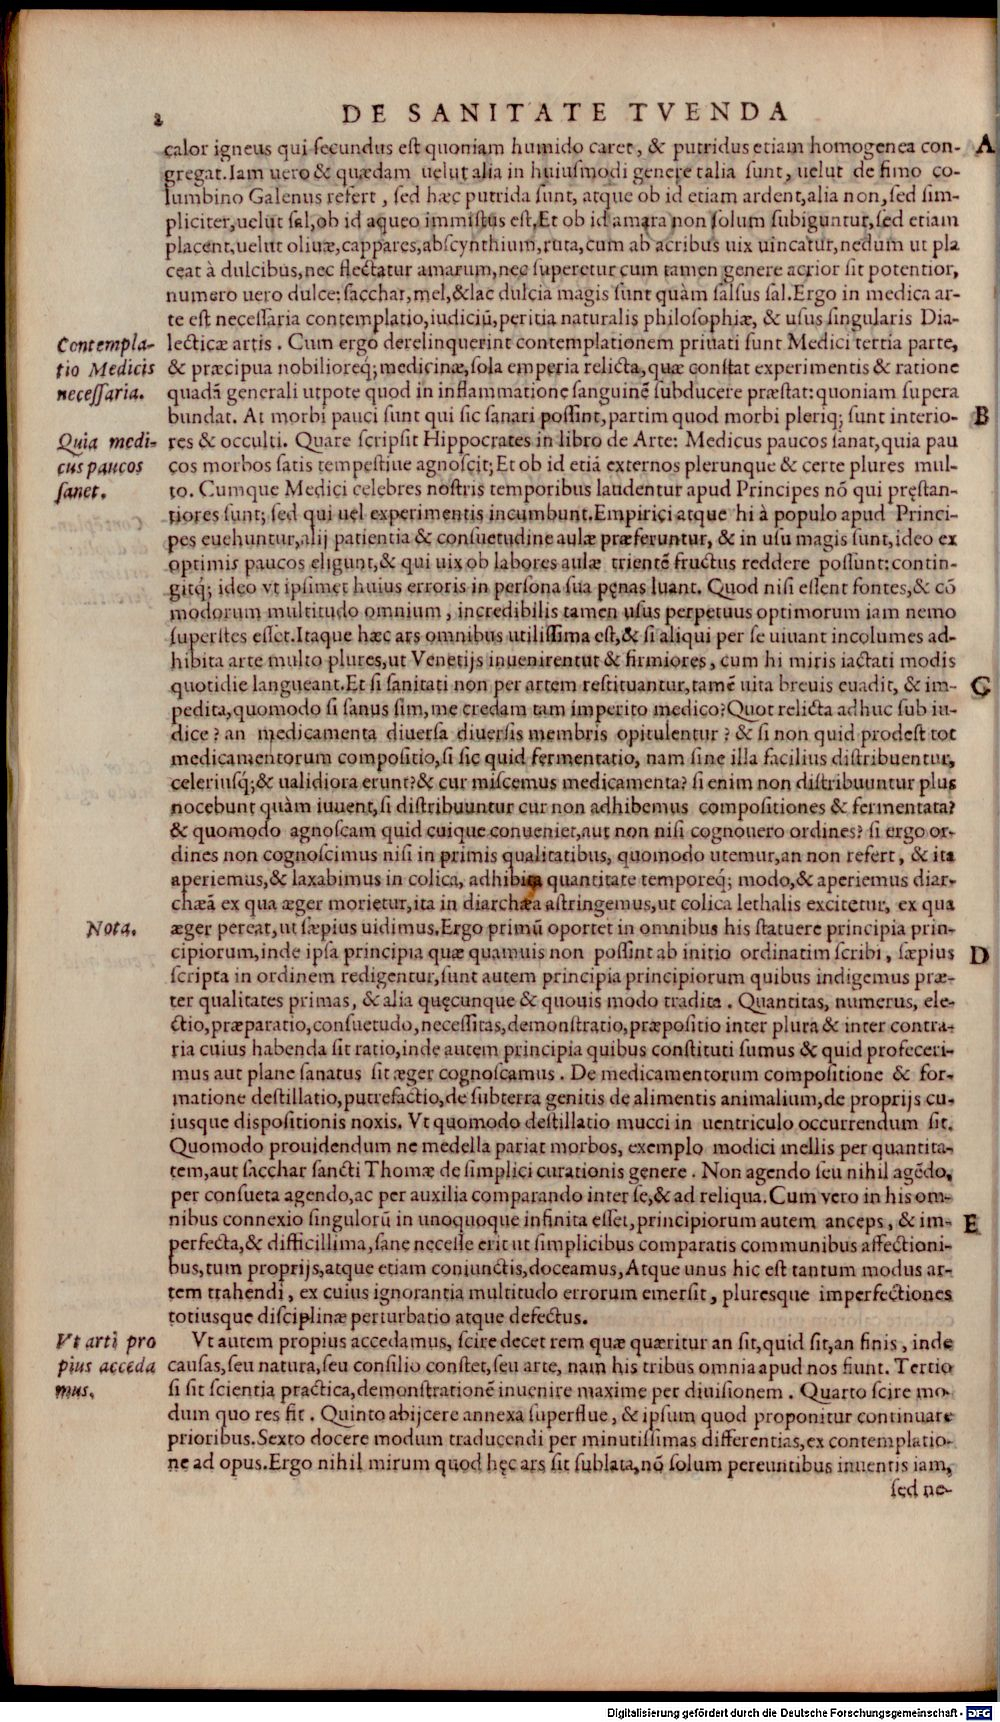 2 DE SANITATE TVENDA
calor igneus qui secundus est quoniam humido caret, & putridus etiam homogenea con- A
gregat. Iam uero & quædam uelut alia in huiusmodi genere talia sunt, uelut de fimo co-
lumbino Galenus refert, sed hæc putrida sunt, atque ob id etiam ardent, alia non, sed sim-
pliciter, uelut sal, ob id aqueo immistus est. Et ob id amara non solum subiguntur, sed etiam
placent, uelut oliuæ, cappares, abscynthium, ruta, cum ab acribus uix uincatur, nedum ut pla
ceat à dulcibus, nec flectatur amarum, nec superetur cum tamen genere acrior sit potentior,
numero uero dulce: sacchar, mel, & lac dulcia magis sunt quàm salsus sal. Ergo in medica ar-
te est necessaria contemplatio, iudiciū, peritia naturalis philosophiæ, & usus singularis Dia-
Contempla- lecticæ artis. Cum ergo derelinquerint contemplationem priuati sunt Medici tertia parte,
tio Medicis & præcipua nobilioreq́; medicinæ, sola emperia relicta, quæ constat experimentis & ratione
necessaria. quadā generali utpote quod in inflammatione sanguinē subducere præstat: quoniam supera
bundat. At morbi pauci sunt qui sic sanari possint, partim quod morbi pleriq; sunt interio- B
Quia medi- res & occulti. Quare scripsit Hippocrates in libro de Arte: Medicus paucos sanat, quia pau
cus paucos cos morbos satis tempestiue agnoscit; Et ob id etiā externos plerunque & certe plures mul-
sanet. to. Cumque Medici celebres nostris temporibus laudentur apud Principes nō qui pręstan-
tiores sunt; sed qui uel experimentis incumbunt. Empirici atque hi à populo apud Princi-
pes euehuntur, alij patientia & consuetudine aulæ præferuntur, & in usu magis sunt, ideo ex
optimis paucos eligunt, & qui uix ob labores aulæ trientē fructus reddere possunt: contin-
gitq́; ideo vt ipsimet huius erroris in persona sua pęnas luant. Quod nisi essent fontes, & cō
modorum multitudo omnium, incredibilis tamen usus perpetuus optimorum iam nemo
superstes esset. Itaque hæc ars omnibus utilissima est, & si aliqui per se uiuant incolumes ad-
hibita arte multo plures, ut Venetijs inuenirentur & firmiores, cum hi miris iactati modis
quotidie langueant. Et si sanitati non per artem restituantur, tamē uita breuis euadit, & im- C
pedita, quomodo si sanus sim, me credam tam imperito medico? Quot relicta adhuc sub iu-
dice? an medicamenta diuersa diuersis membris opitulentur? & si non quid prodest tot
medicamentorum compositio, si sic quid fermentatio, nam sine illa facilius distribuentur,
celeriusq́; & ualidiora erunt? & cur miscemus medicamenta? si enim non distribuuntur plus
nocebunt quàm iuuent, si distribuuntur cur non adhibemus compositiones & fermentata?
& quomodo agnoscam quid cuique conueniet, aut non nisi cognouero ordines? si ergo or-
dines non cognoscimus nisi in primis qualitatibus, quomodo utemur, an non refert, & ita
aperiemus, & laxabimus in colica, adhibita quantitate temporeq́; modo, & aperiemus diar-
chæā ex qua æger morietur, ita in diarchæa astringemus, ut colica lethalis excitetur, ex qua
Nota. æger pereat, ut sæpius uidimus. Ergo primū oportet in omnibus his statuere principia prin-
cipiorum, inde ipsa principia quæ quamuis non possint ab initio ordinatim scribi, sæpius D
scripta in ordinem redigentur, sunt autem principia principiorum quibus indigemus præ-
ter qualitates primas, & alia quęcunque & quouis modo tradita. Quantitas, numerus, ele-
ctio, præparatio, consuetudo, necessitas, demonstratio, præpositio inter plura & inter contra-
ria cuius habenda sit ratio, inde autem principia quibus constituti sumus & quid profeceri-
mus aut plane sanatus sit æger cognoscamus. De medicamentorum compositione & for-
matione destillatio, putrefactio, de subterra genitis de alimentis animalium, de proprijs cu-
iusque dispositionis noxis. Vt quomodo destillatio mucci in uentriculo occurrendum sit.
Quomodo prouidendum ne medella pariat morbos, exemplo modici mellis per quantita-
tem, aut sacchar sancti Thomæ de simplici curationis genere. Non agendo seu nihil agēdo,
per consueta agendo, ac per auxilia comparando inter se, & ad reliqua. Cum vero in his om-
nibus connexio singulorū in unoquoque infinita esset, principiorum autem anceps, & im- E
perfecta, & difficillima, sane necesse erit ut simplicibus comparatis communibus affectioni-
bus, tum proprijs, atque etiam coniunctis, doceamus, Atque unus hic est tantum modus ar-
tem trahendi, ex cuius ignorantia multitudo errorum emersit, pluresque imperfectiones
totiusque disciplinæ perturbatio atque defectus.
Vt arti pro Vt autem propius accedamus, scire decet rem quæ quæritur an sit, quid sit, an finis, inde
pius acceda causas, seu natura, seu consilio constet, seu arte, nam his tribus omnia apud nos fiunt. Tertio
mus. si sit scientia practica, demonstrationē inuenire maxime per diuisionem. Quarto scire mo-
dum quo res fit. Quinto abijcere annexa superflue, & ipsum quod proponitur continuare
prioribus. Sexto docere modum traducendi per minutissimas differentias, ex contemplatio-
ne ad opus. Ergo nihil mirum quod hęc ars sit sublata, nō solum pereuntibus inuentis iam,
sed ne-
Digitalisierung gefördert durch die Deutsche Forschungsgemeinschaft - DFG